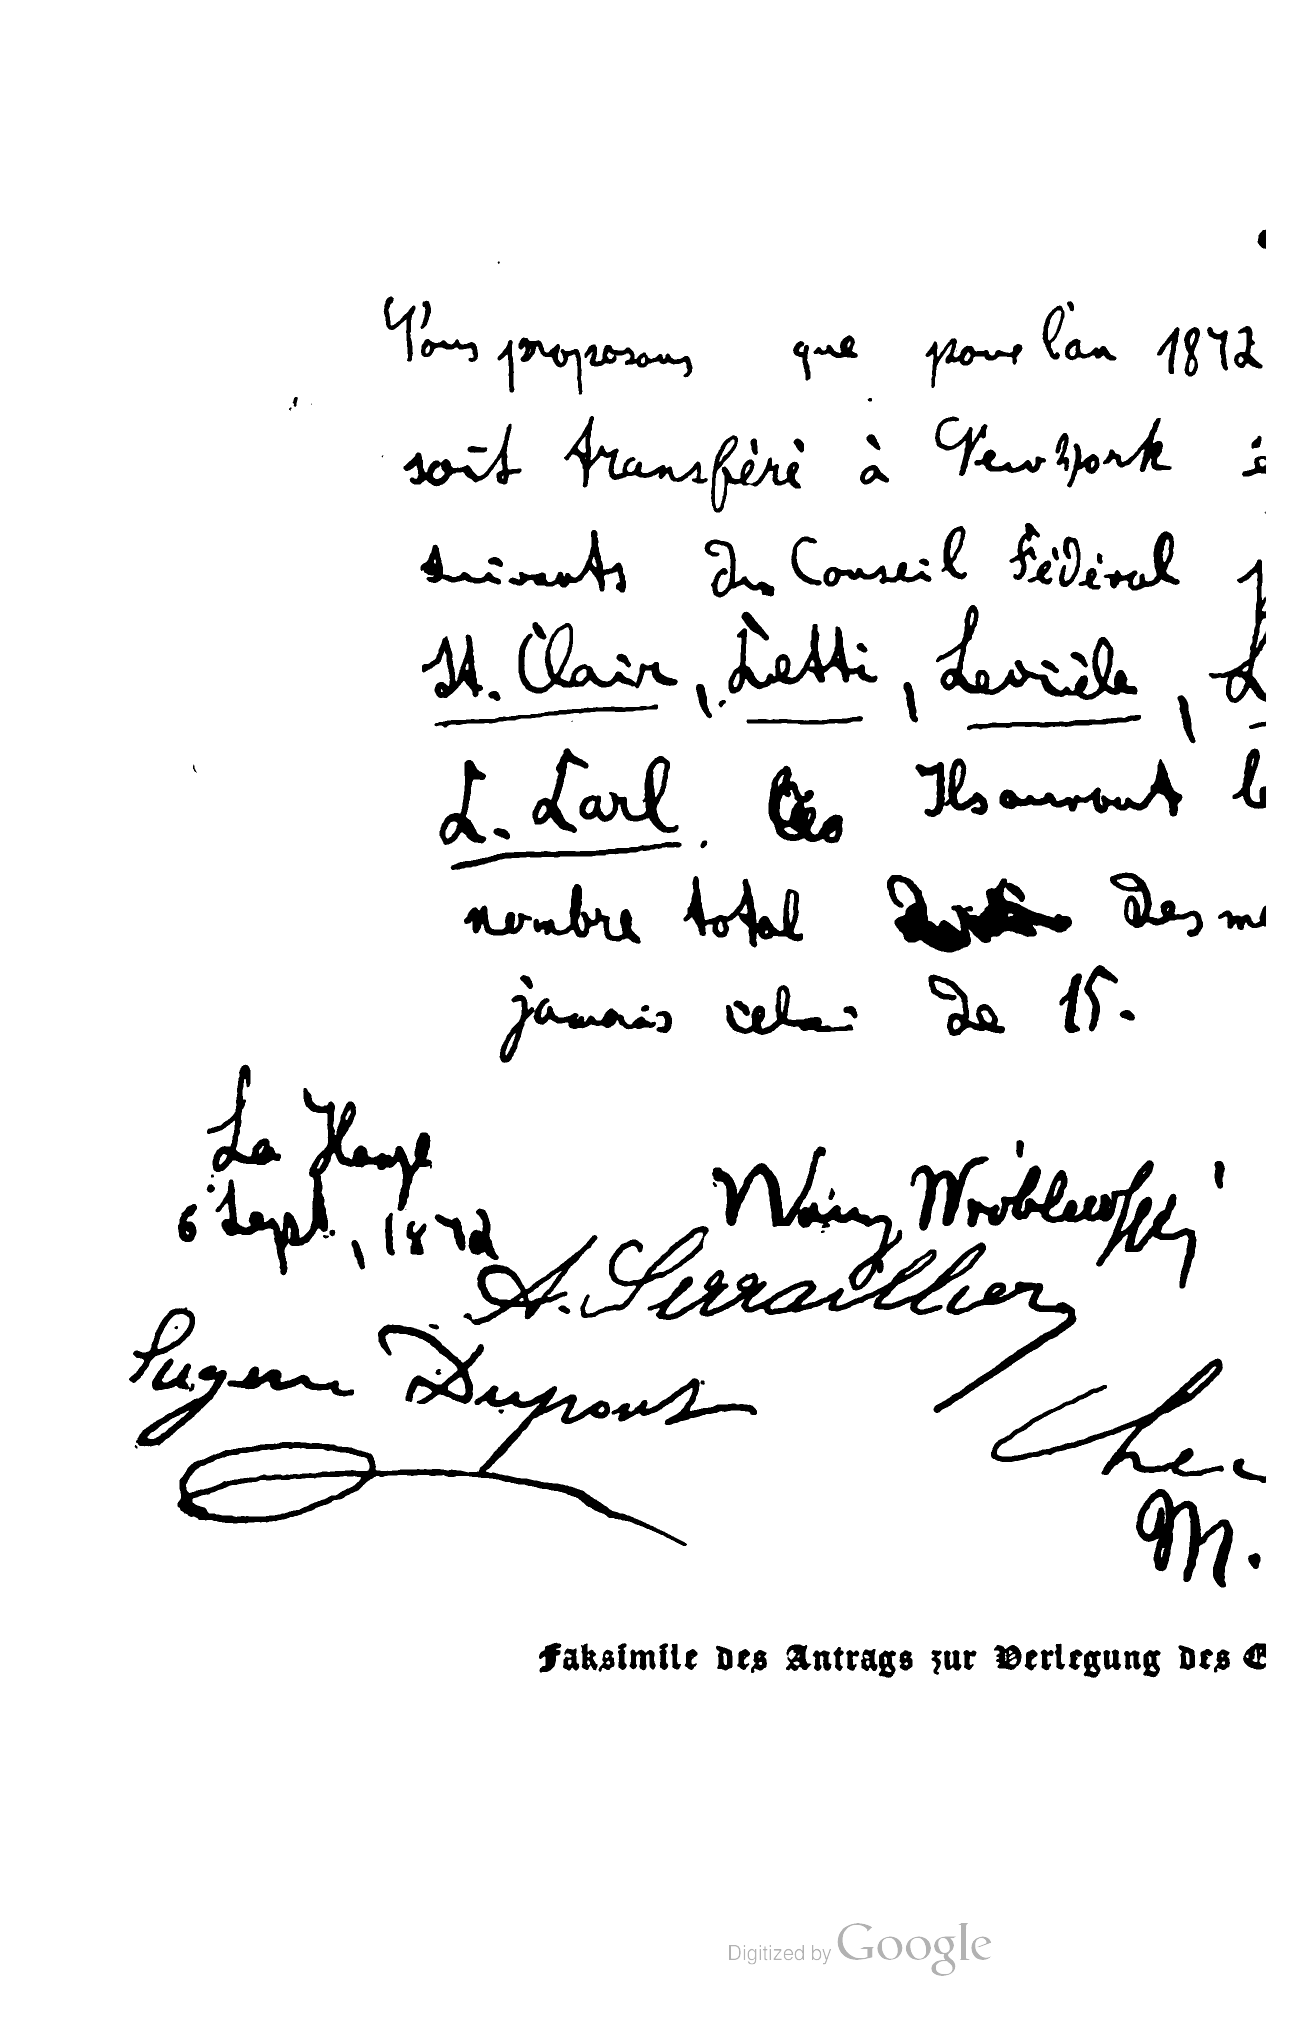 Nous proposons que pour l'an 1872
soit transféré à New York
suivants du Conseil Fédéral
St. Clair, Cetti, Levièle, L
L. Carl. Ils auront le
nombre total des me
jamais celui de 15.
La Haye
6 Sept., 1872
Wróblewski
A. Serraillier
Eugene Dupont
M.
Faksimile des Antrags zur Verlegung des G
Digitized by Google